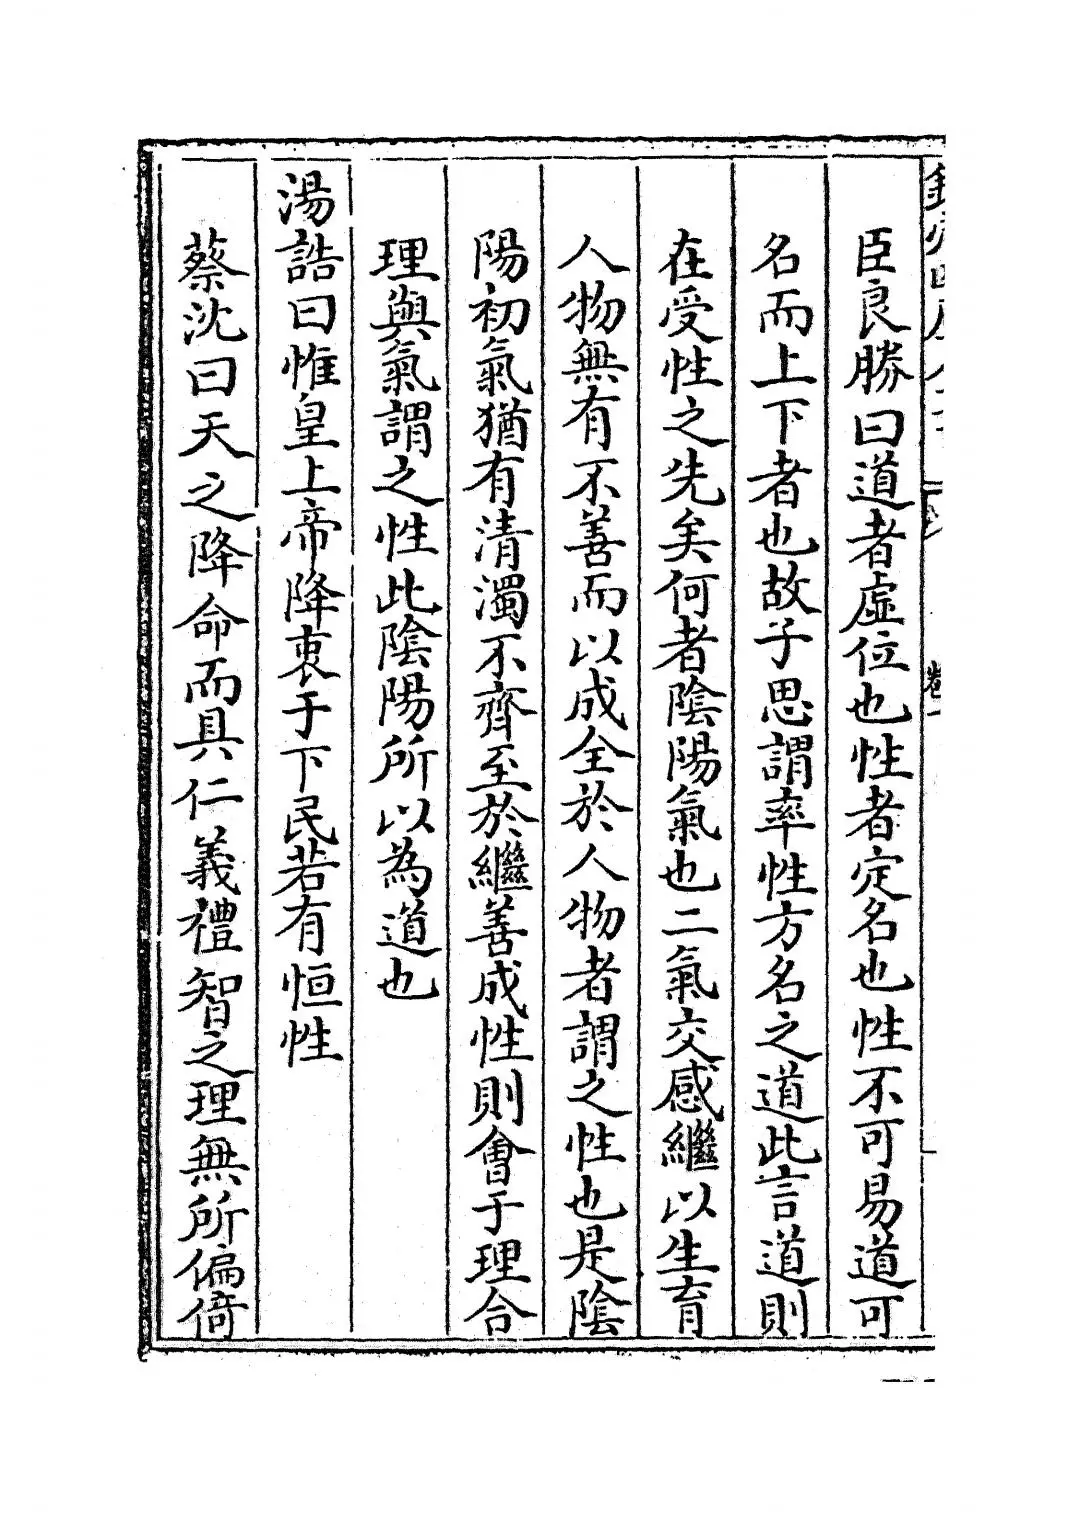 臣良勝曰道者虛位也性者定名也性不可易道可
名而上下者也故子思謂率性方名之道此言道則
在受性之先矣何者陰陽氣也二氣交感繼以生育
人物無有不善而以成全於人物者謂之性也是陰
陽初氣猶有清濁不齊至於繼善成性則會于理合
理與氣謂之性此陰陽所以為道也
湯誥曰惟皇上帝降衷于下民若有恒性
蔡沈曰天之降命而具仁義禮智之理無所偏倚